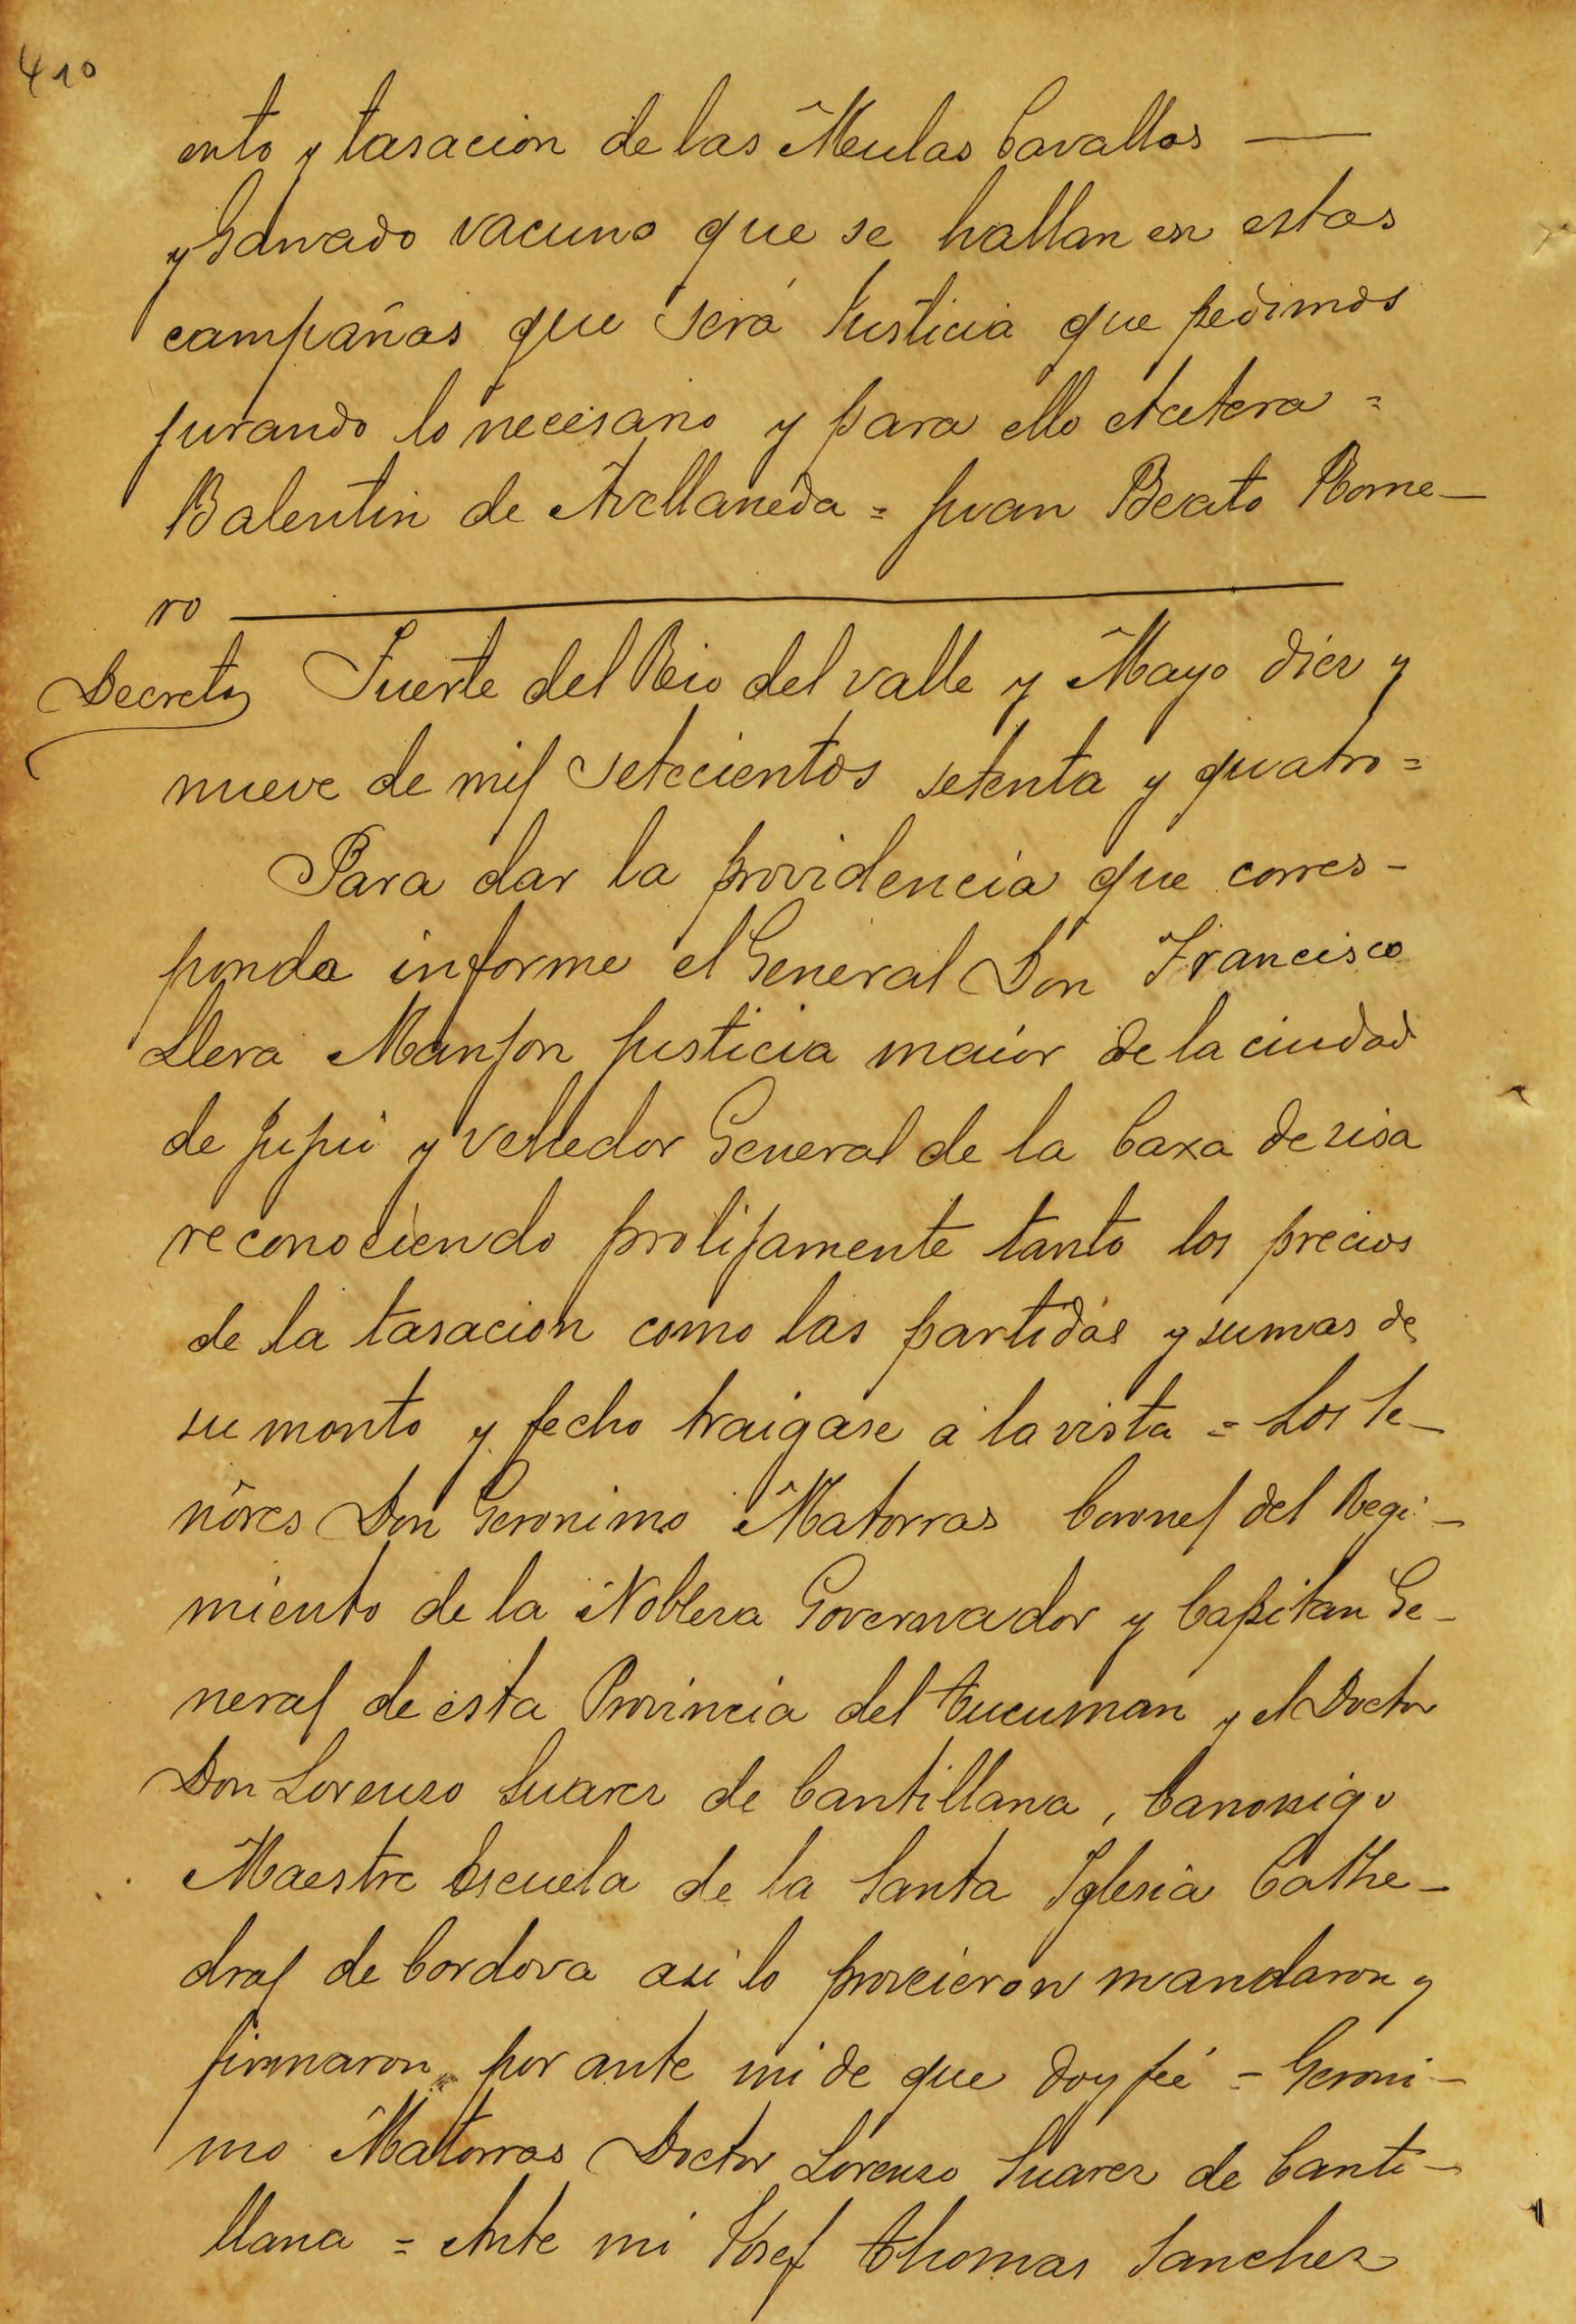 410
ento y tasacion de las Mulas Cavallos ——
y Ganado vacuno que se hallan en estas
campañas que será Justicia que pedimos
jurando lo necesario y para ello etcetera =
Balentin de Avellaneda = Juan Beato Rome-
ro ——
Decreto Fuerte del Rio del valle y Mayo diez y
nueve de mil setecientos setenta y quatro =
Para dar la providencia que corres-
ponda informe el General Don Francisco
Llera Manjon Justicia maior de la ciudad
de Jujui y Vehedor General de la Caxa de sisa
reconociendo prolijamente tanto los precios
de la tasacion como las partidas y sumas de
su monto y fecho traigase a la vista = Los Se-
ñores Don Geronimo Matorras Coronel del Regi-
miento de la Nobleza Governador y Capitan Ge-
neral de esta Provincia del Tucuman y el Doctor
Don Lorenzo Suarez de Cantillana, Canonigo
Maestre Escuela de la Santa Iglesia Cathe-
dral de Cordova asi lo proveieron mandaron y
firmaron por ante mi de que doy feé = Geroni-
mo Matorras Doctor Lorenzo Suarez de Canti-
llana = Ante mi Josef Thomas Sanchez